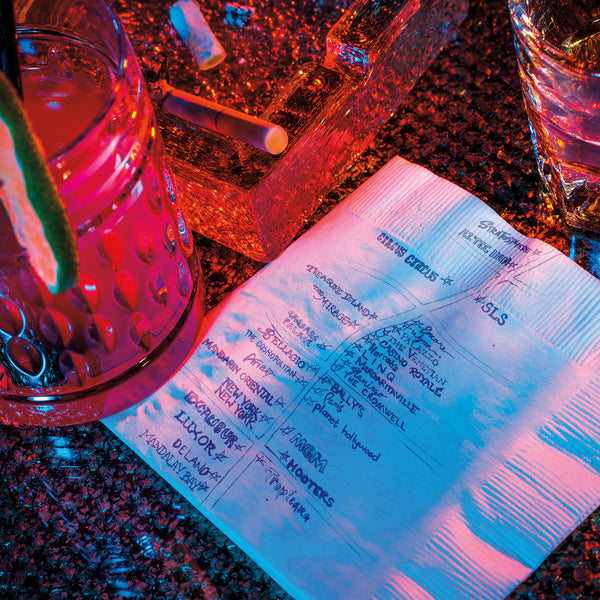 STRATOSPHERE
CIRCUS CIRCUS
SLS
TREASURE ISLAND
THE MIRAGE
Encore
PALAZZO
THE VENETIAN
CASINO ROYALE
Harrah's
LINQ
MARGARITAVILLE
Flamingo
THE CROMWELL
CAESARS
PALACE
BELLAGIO
THE COSMOPOLITAN
Aria
MANDARIN ORIENTAL
NEW YORK
NEW YORK
EXCALIBUR
LUXOR
DELANO
MANDALAY BAY
BALLY'S
Paris
planet hollywood
MGM
HOOTERS
Tropicana